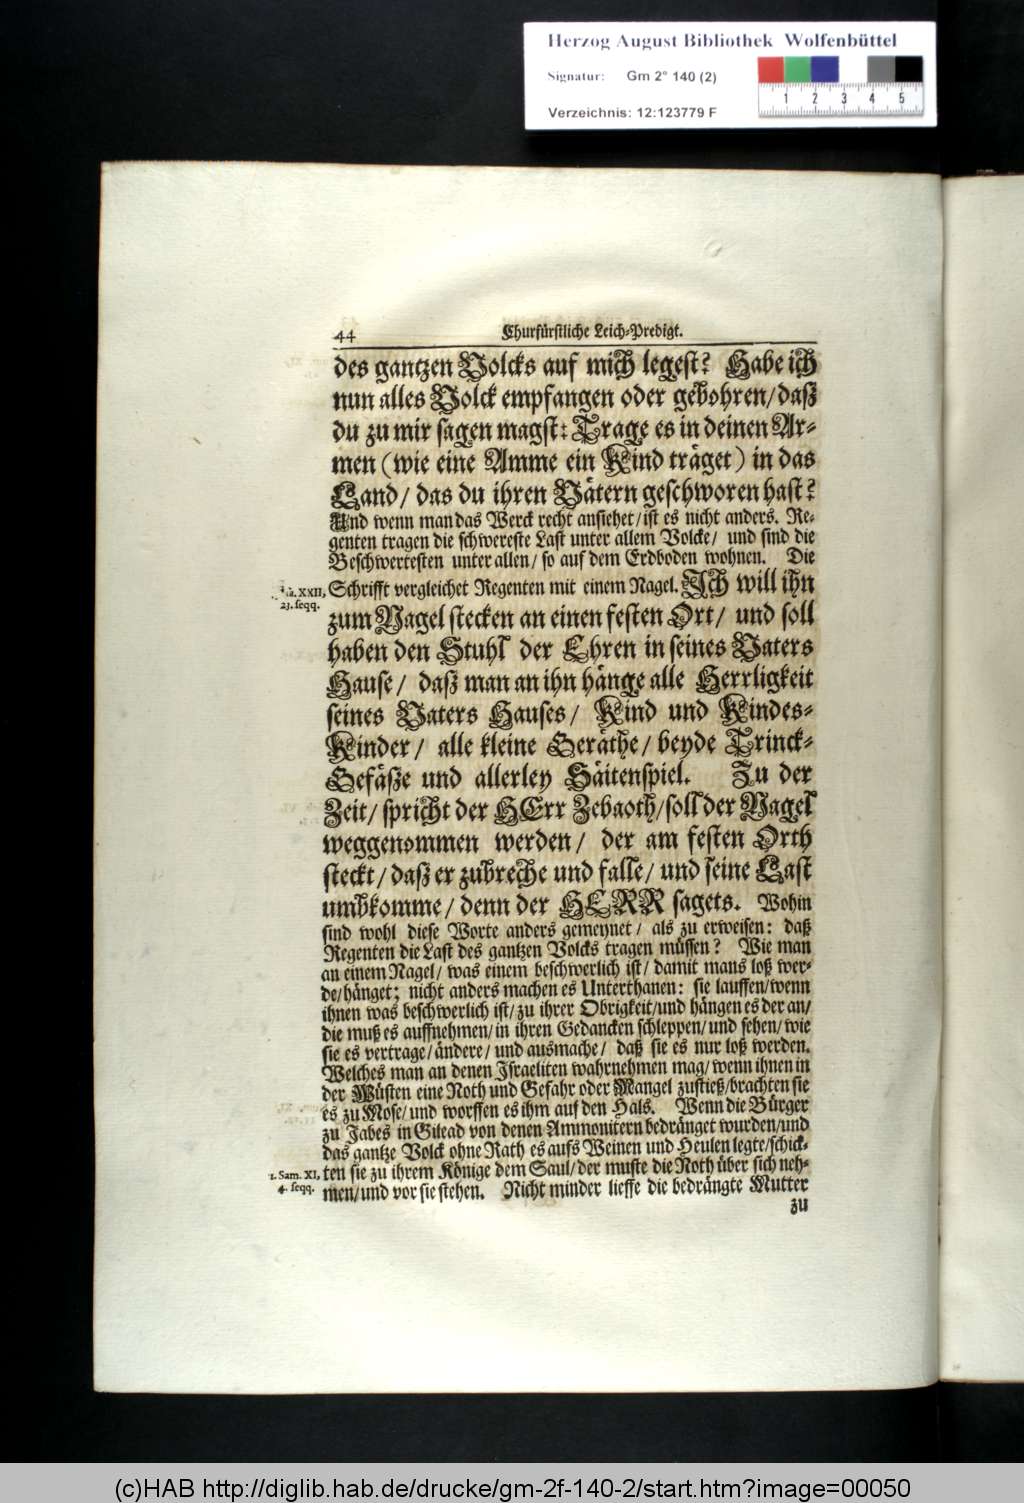 Herzog August Bibliothek Wolfenbüttel
Signatur: Gm 2° 140 (2)
1 2 3 4 5
Verzeichnis: 12:123779 F
44 Churfürstliche Leich-Predigt.
des gantzen Volcks auf mich legest? Habe ich
nun alles Volck empfangen oder gebohren/daß
du zu mir sagen magst: Trage es in deinen Ar-
men (wie eine Amme ein Kind träget) in das
Land/ das du ihren Vätern geschworen hast?
Und wenn man das Werck recht ansiehet/ist es nicht anders. Re-
genten tragen die schwereste Last unter allem Volcke/ und sind die
Beschwertesten unter allen/ so auf dem Erdboden wohnen. Die
XXII, Schrifft vergleichet Regenten mit einem Nagel. Ich will ihn
23. seqq.
zum Nagel stecken an einen festen Ort/ und soll
haben den Stuhl der Ehren in seines Vaters
Hause/ daß man an ihn hänge alle Herrligkeit
seines Vaters Hauses/ Kind und Kindes-
Kinder/ alle kleine Geräthe/ beyde Trinck-
Gefäße und allerley Säitenspiel. Zu der
Zeit/ spricht der HErr Zebaoth/soll der Nagel
weggenommen werden/ der am festen Orth
steckt/ daß er zubreche und falle/ und seine Last
umbkomme/ denn der HERR sagets. Wohin
sind wohl diese Worte anders gemeynet/ als zu erweisen: daß
Regenten die Last des gantzen Volcks tragen müssen? Wie man
an einem Nagel/ was einem beschwerlich ist/ damit mans loß wer-
de/hänget; nicht anders machen es Unterthanen: sie lauffen/wenn
ihnen was beschwerlich ist/ zu ihrer Obrigkeit/und hängen es der an/
die muß es auffnehmen/ in ihren Gedancken schleppen/ und sehen/ wie
sie es vertrage/ändere/ und ausmache/ daß sie es nur loß werden.
Welches man an denen Israeliten wahrnehmen mag/ wenn ihnen in
der Wüsten eine Noth und Gefahr oder Mangel zustieß/brachten sie
es zu Mose/ und worffen es ihm auf den Hals. Wenn die Bürger
zu Jabes in Gilead von denen Ammonitern bedränget wurden/und
das gantze Volck ohne Rath es aufs Weinen und Heulen legte/schick-
1. Sam. XI, ten sie zu ihrem Könige dem Saul/ der muste die Noth über sich neh-
4. seqq. men/ und vor sie stehen. Nicht minder lieffe die bedrängte Mutter
zu
(c)HAB http://diglib.hab.de/drucke/gm-2f-140-2/start.htm?image=00050